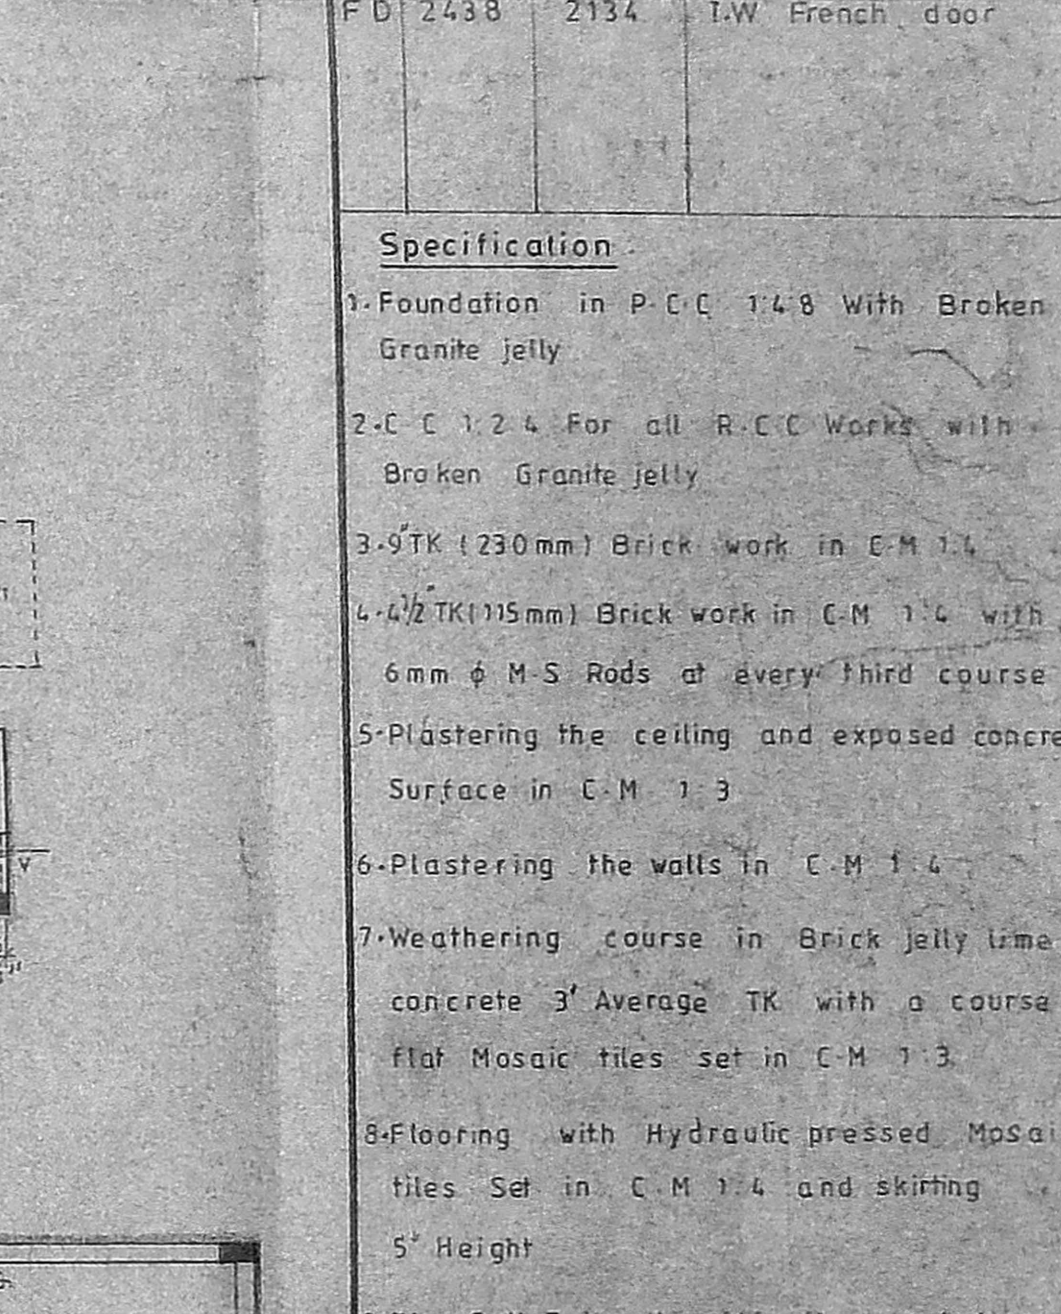 F D 2438 2134 T.W French door
Specification
1. Foundation in P.C.C 1:4:8 With Broken
Granite jelly
2.C C 1:2:4 For all R.C.C Works with
Broken Granite jelly
3.9"TK (230mm) Brick work in C.M 1:4
4.4½"TK(115mm) Brick work in C.M 1:4 with
6mm φ M.S Rods at every third course
5.Plastering the ceiling and exposed concre
Surface in C.M 1:3
6.Plastering the walls in C.M 1:4
7.Weathering course in Brick jelly lime
concrete 3" Average TK with a course
flat Mosaic tiles set in C.M 1:3
8.Flooring with Hydraulic pressed Mosai
tiles Set in C.M 1:4 and skirting
5" Height